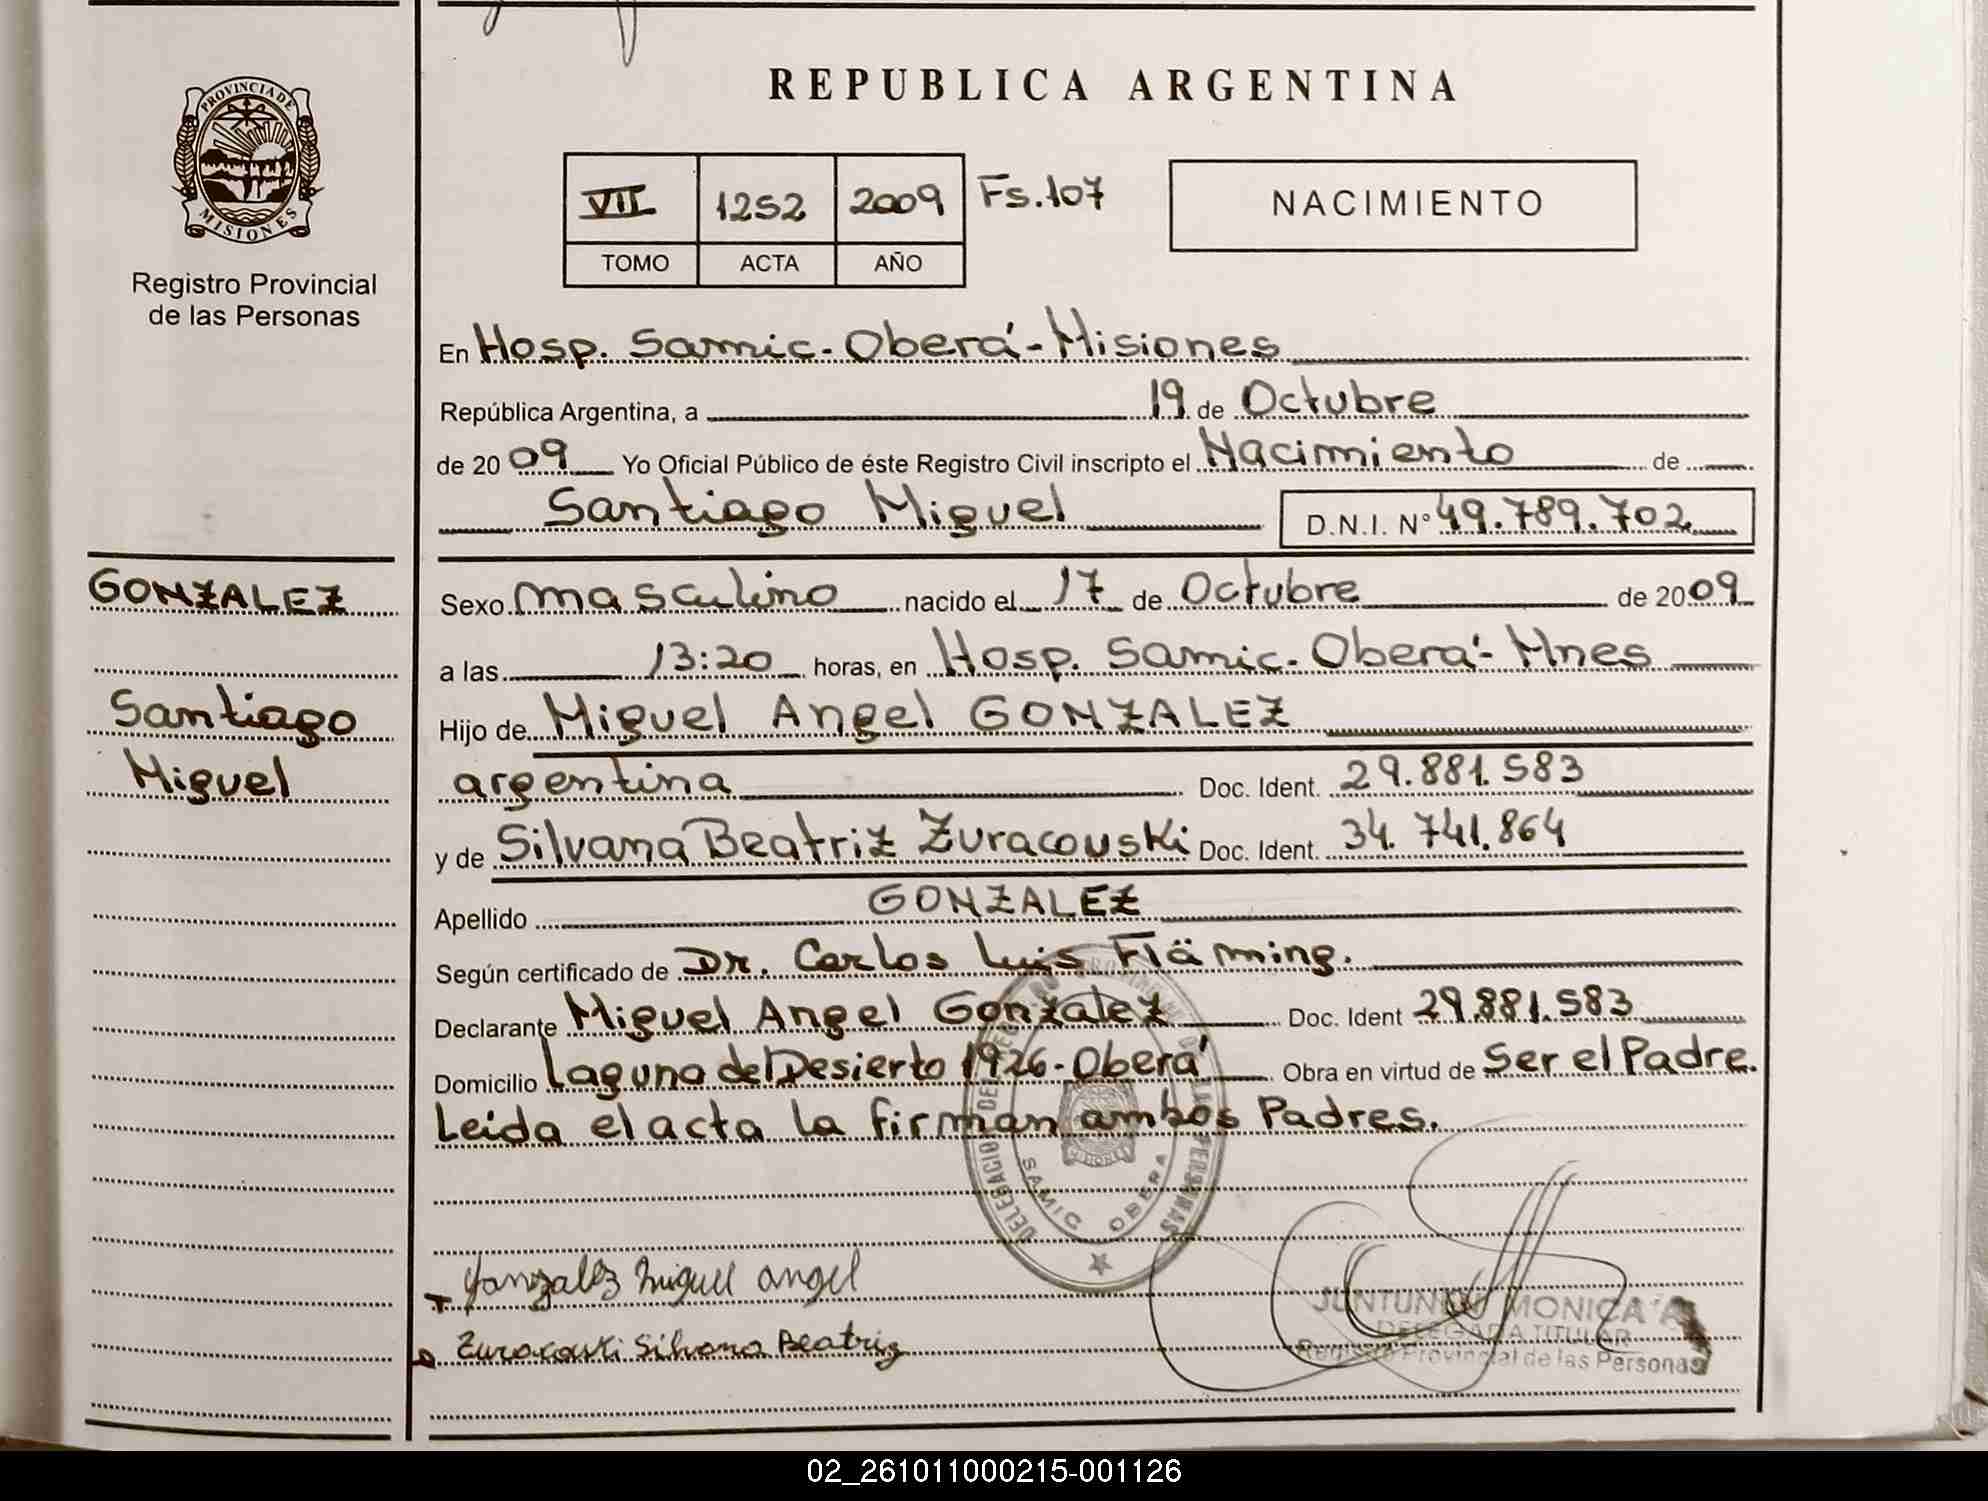 REPUBLICA ARGENTINA
PROVINCIA DE
MISIONES
Registro Provincial
de las Personas
VII 1252 2009 Fs.107
TOMO ACTA AÑO
NACIMIENTO
En Hosp. Samic. Oberá - Misiones
República Argentina, a 19 de Octubre
de 2009 Yo Oficial Público de éste Registro Civil inscripto el Nacimiento de
Santiago Miguel D.N.I. N° 49.789.702
GONZALEZ
Santiago
Miguel
Sexo masculino nacido el 17 de Octubre de 2009
a las 13:20 horas, en Hosp. Samic. Oberá - Mnes
Hijo de Miguel Angel GONZALEZ
argentina Doc. Ident. 29.881.583
y de Silvana Beatriz Zuracouski Doc. Ident. 34.741.864
Apellido GONZALEZ
Según certificado de Dr. Carlos Luis Fläming.
Declarante Miguel Angel Gonzalez Doc. Ident 29.881.583
Domicilio Laguna del Desierto 1926 - Oberá Obra en virtud de Ser el Padre.
Leida el acta la firman ambos Padres.
SAMIC OBERA
Gonzalez Miguel angel
Zuracouski Silvana Beatriz
MONICA A
DELEGADA TITULAR
Registro Provincial de las Personas
02_261011000215-001126